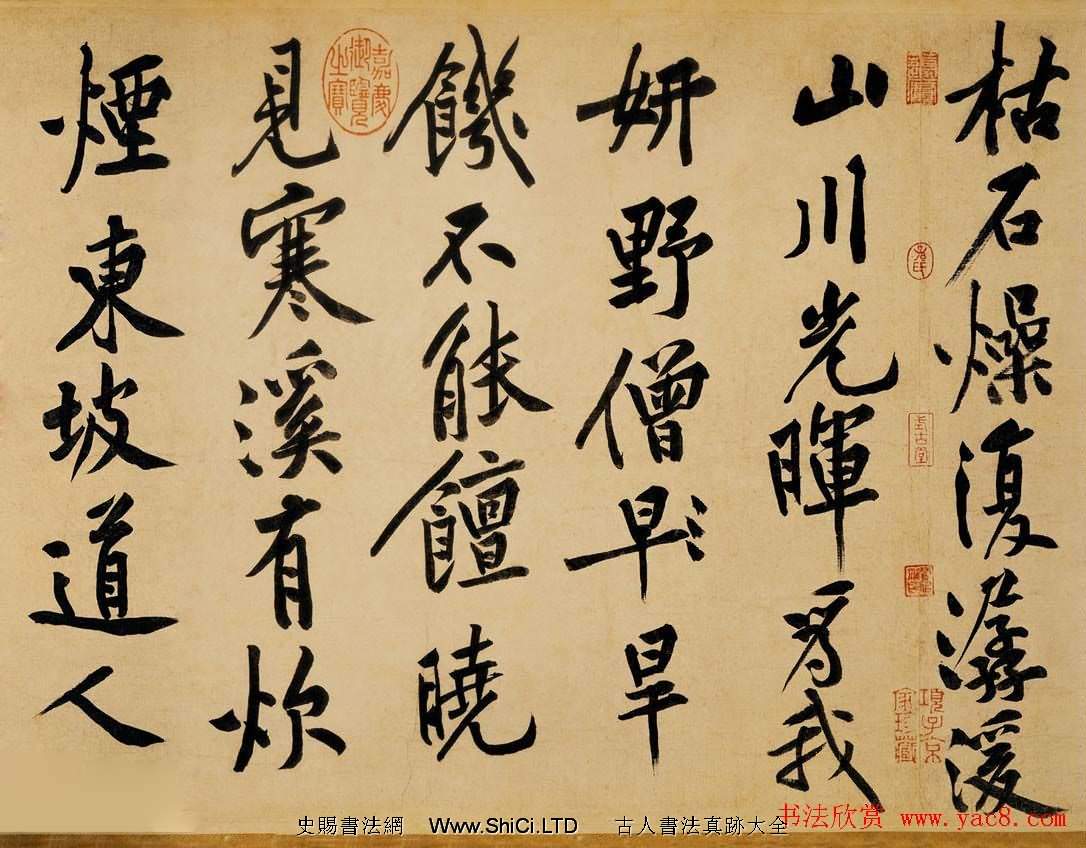 枯石燥復潺湲
山川光暉為我
妍野僧早旱
饑不能饘曉
見寒溪有炊
煙東坡道人
嘉慶御覽之寶
式古堂
項子京家珍藏
史賜書法網 Www.ShiCi.LTD 古人書法真跡大全
书法欣赏 www.yac8.com